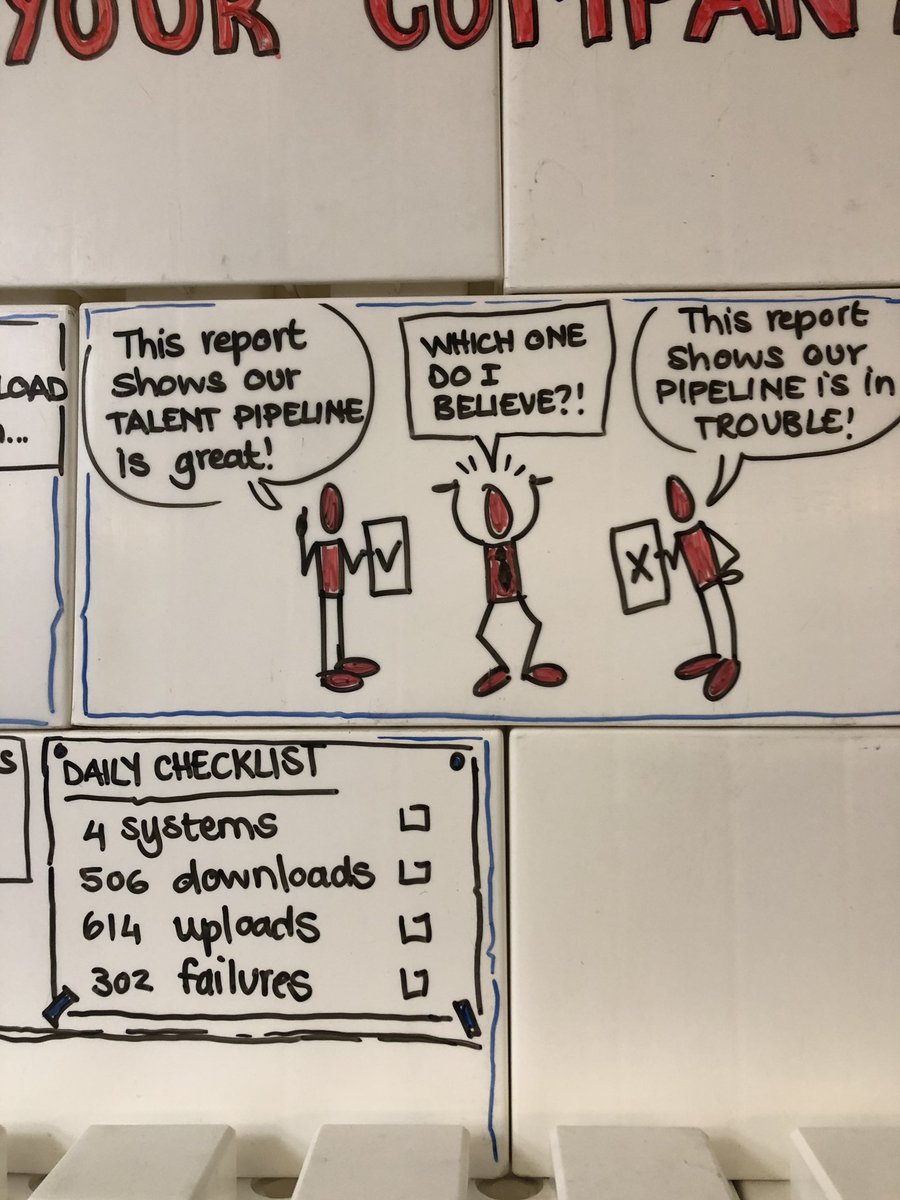 YOUR COMPAN
LOAD
This report
shows our
TALENT PIPELINE
is great!
WHICH ONE
DO I
BELIEVE?!
This report
shows our
PIPELINE is in
TROUBLE!
V
X
S
DAILY CHECKLIST
4 systems
506 downloads
614 uploads
302 failures